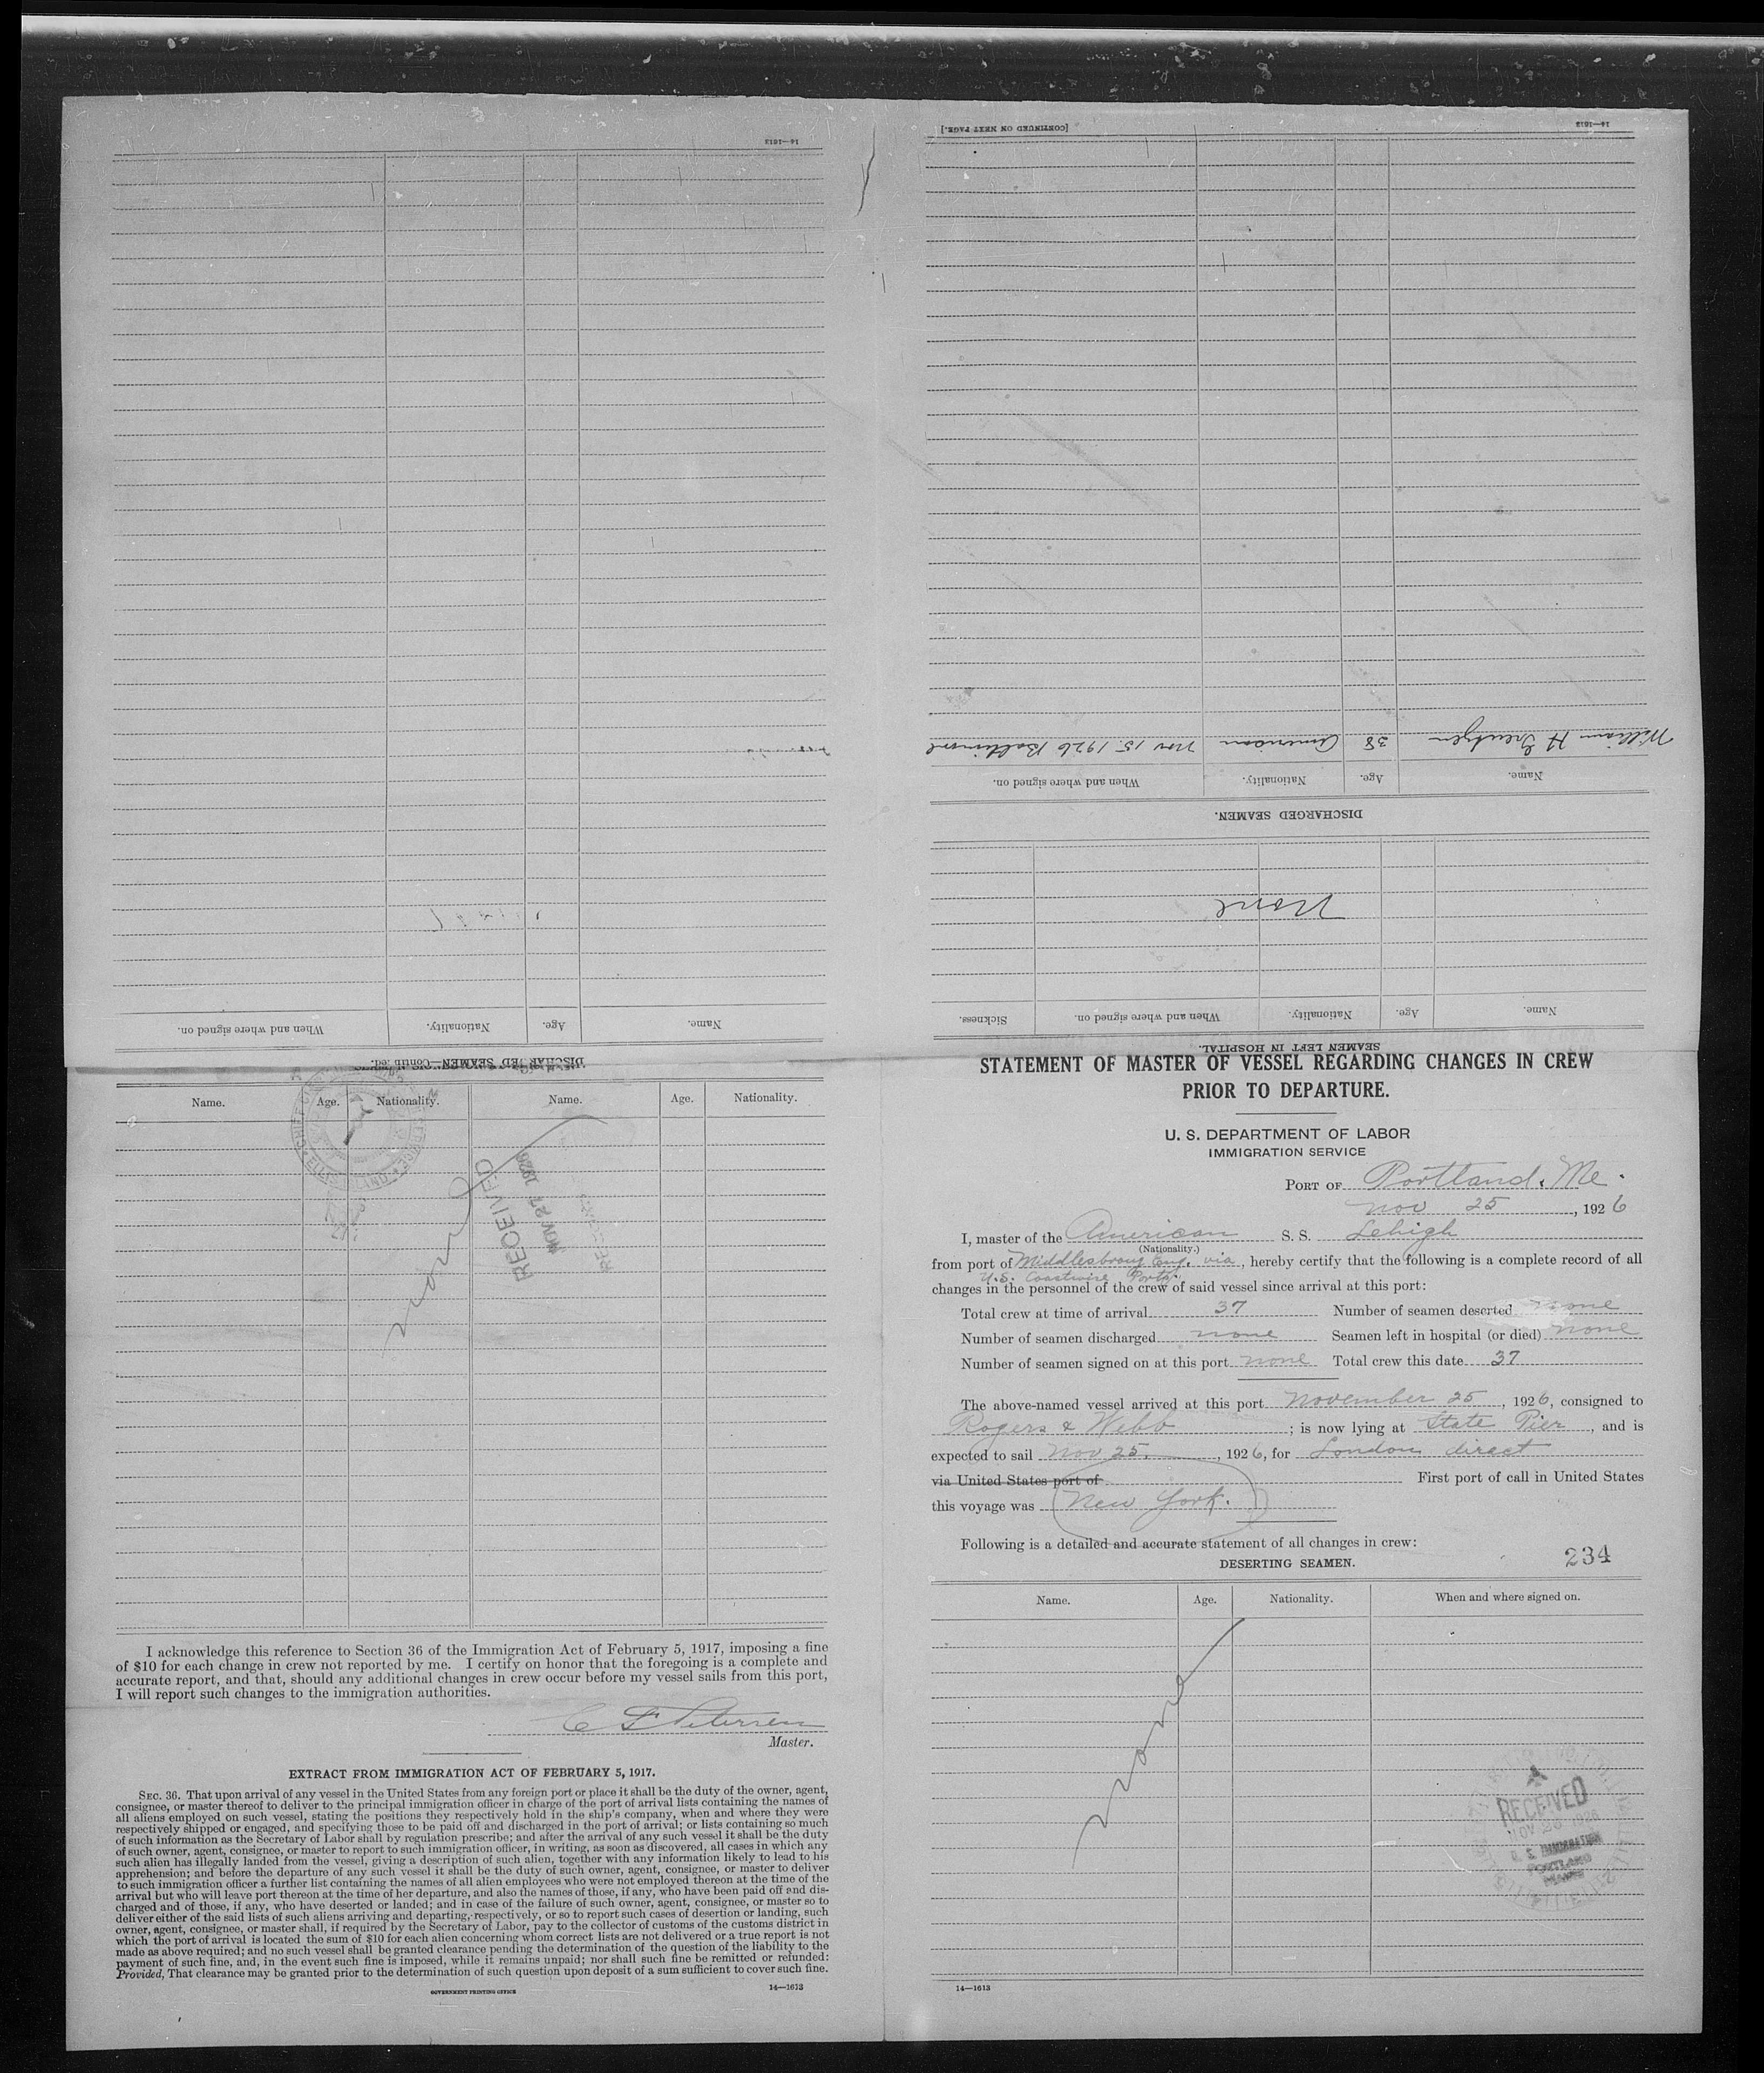 STATEMENT OF MASTER OF VESSEL REGARDING CHANGES IN CREW
PRIOR TO DEPARTURE.
U. S. DEPARTMENT OF LABOR
IMMIGRATION SERVICE
PORT OF Portland, Me.
Nov 25, 1926
I, master of the American S. S. Lehigh
(Nationality.)
from port of Middlesbroug Eng. via, hereby certify that the following is a complete record of all
U.S. Coastwise Ports.
changes in the personnel of the crew of said vessel since arrival at this port:
Total crew at time of arrival 37 Number of seamen deserted none
Number of seamen discharged none Seamen left in hospital (or died) none
Number of seamen signed on at this port none Total crew this date 37
The above-named vessel arrived at this port November 25, 1926, consigned to
Rogers & Webb; is now lying at State Pier, and is
expected to sail Nov 25, 1926, for London direct
via United States port of First port of call in United States
this voyage was New York.
Following is a detailed and accurate statement of all changes in crew:
DESERTING SEAMEN.
234
Name. Age. Nationality. When and where signed on.
none
RECEIVED
NOV 26 1926
U. S. IMMIGRATION
PORTLAND
MAINE
14—1613
SEAMEN LEFT IN HOSPITAL.
Name. Age. Nationality. When and where signed on. Sickness.
None
DISCHARGED SEAMEN.
Name. Age. Nationality. When and where signed on.
William H 38 American Nov 15 1926 Baltimore
14—1613
[CONTINUED ON NEXT PAGE.]
DISCHARGED SEAMEN—Continued.
Name. Age. Nationality. When and where signed on.
14—1613
Name. Age. Nationality. Name. Age. Nationality.
none
RECEIVED
NOV 27 1926
I acknowledge this reference to Section 36 of the Immigration Act of February 5, 1917, imposing a fine
of $10 for each change in crew not reported by me. I certify on honor that the foregoing is a complete and
accurate report, and that, should any additional changes in crew occur before my vessel sails from this port,
I will report such changes to the immigration authorities.
C F Petersen
Master.
EXTRACT FROM IMMIGRATION ACT OF FEBRUARY 5, 1917.
SEC. 36. That upon arrival of any vessel in the United States from any foreign port or place it shall be the duty of the owner, agent,
consignee, or master thereof to deliver to the principal immigration officer in charge of the port of arrival lists containing the names of
all aliens employed on such vessel, stating the positions they respectively hold in the ship's company, when and where they were
respectively shipped or engaged, and specifying those to be paid off and discharged in the port of arrival; or lists containing so much
of such information as the Secretary of Labor shall by regulation prescribe; and after the arrival of any such vessel it shall be the duty
of such owner, agent, consignee, or master to report to such immigration officer, in writing, as soon as discovered, all cases in which any
such alien has illegally landed from the vessel, giving a description of such alien, together with any information likely to lead to his
apprehension; and before the departure of any such vessel it shall be the duty of such owner, agent, consignee, or master to deliver
to such immigration officer a further list containing the names of all alien employees who were not employed thereon at the time of the
arrival but who will leave port thereon at the time of her departure, and also the names of those, if any, who have been paid off and dis-
charged and of those, if any, who have deserted or landed; and in case of the failure of such owner, agent, consignee, or master so to
deliver either of the said lists of such aliens arriving and departing, respectively, or so to report such cases of desertion or landing, such
owner, agent, consignee, or master shall, if required by the Secretary of Labor, pay to the collector of customs of the customs district in
which the port of arrival is located the sum of $10 for each alien concerning whom correct lists are not delivered or a true report is not
made as above required; and no such vessel shall be granted clearance pending the determination of the question of the liability to the
payment of such fine, and, in the event such fine is imposed, while it remains unpaid; nor shall such fine be remitted or refunded:
Provided, That clearance may be granted prior to the determination of such question upon deposit of a sum sufficient to cover such fine.
GOVERNMENT PRINTING OFFICE 14—1613